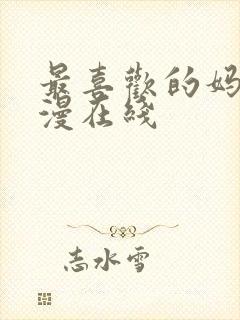 最喜歡的妈
漫在线
志水雪